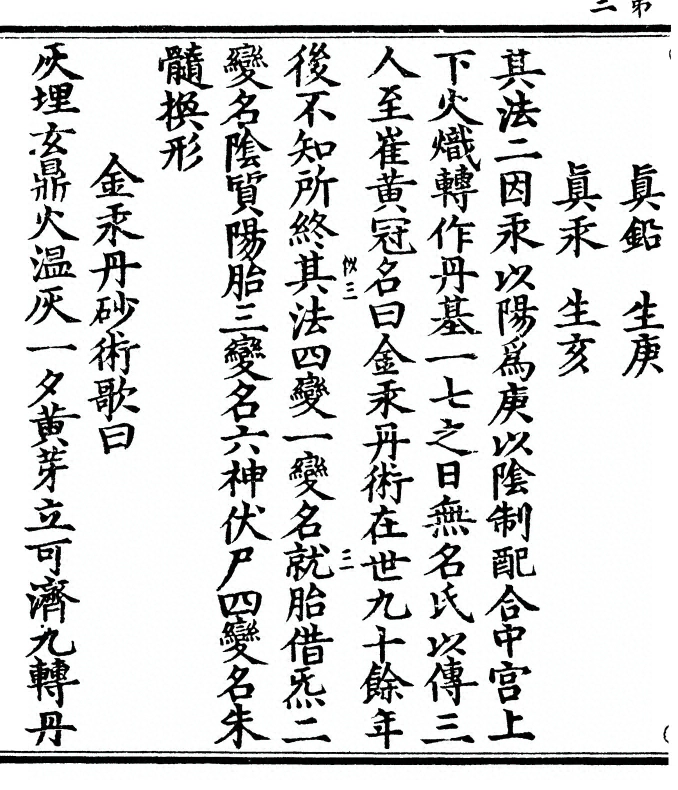 眞鉛　生庚
眞汞　生亥
其法二因汞以陽爲庚以陰制配合中宮上
下火熾轉作丹基一七之日無名氏以傳三
人至崔黃冠名曰金汞丹術在世九十餘年
後不知所終其法四變一變名就胎借炁二
變名陰質陽胎三變名六神伏尸四變名朱
髓換形
金汞丹砂術歌曰
灰埋玄鼎火温灰一夕黄芽立可濟九轉丹